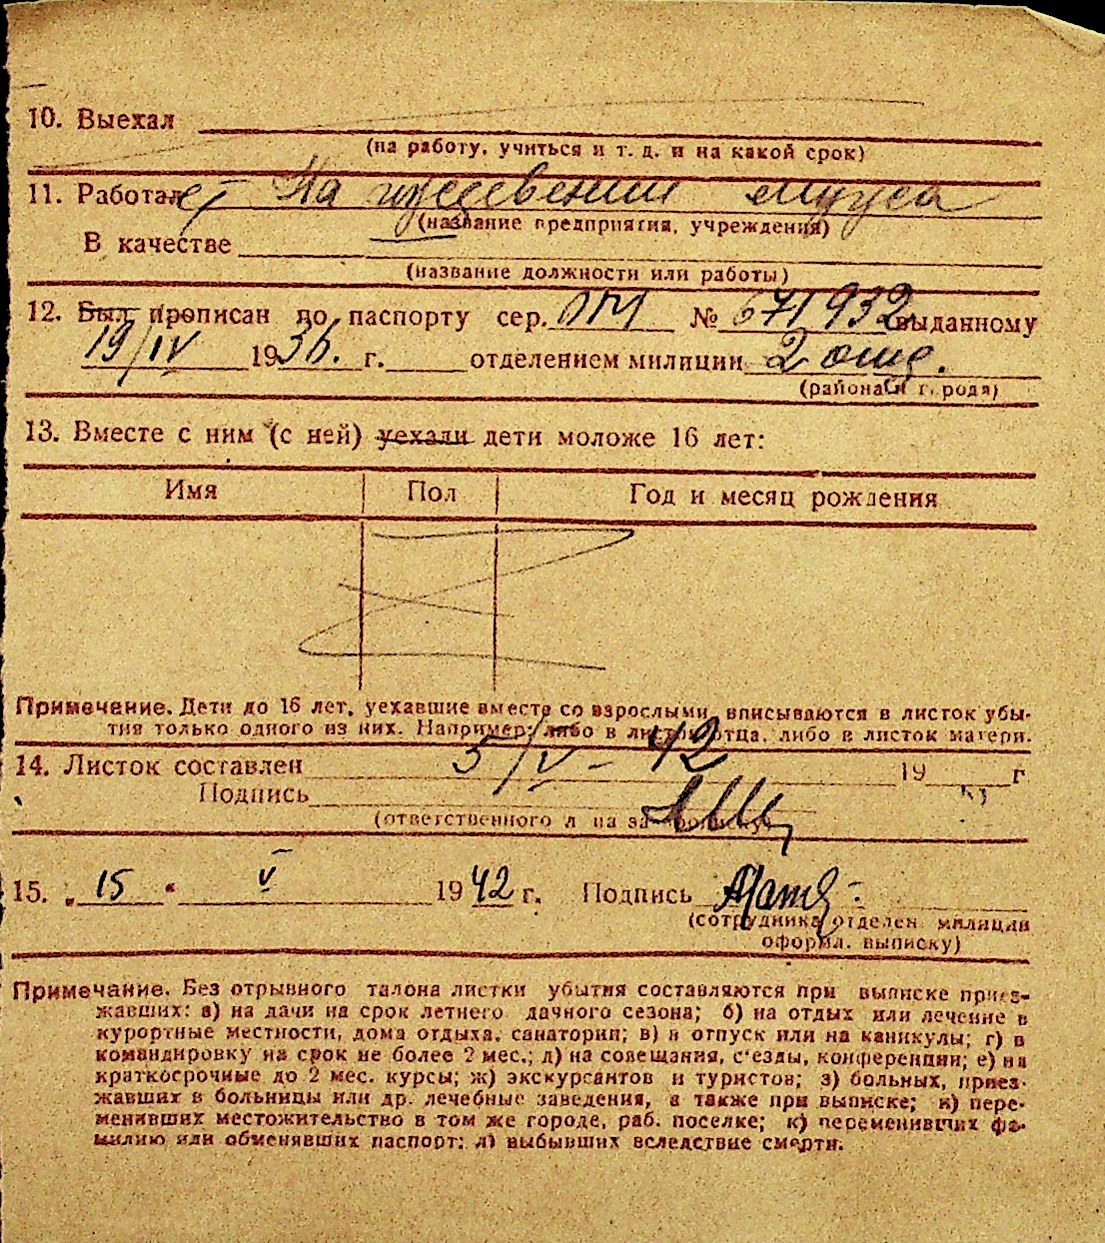 10. Выехал
(на работу, учиться и т. д. и на какой срок)
11. Работает На иждевении мужа
(название предприятия, учреждения)
В качестве
(название должности или работы)
12. Был прописан по паспорту сер. № 671932 выданному
19/IV 1936. г. отделением милиции 2 отд.
(района и города)
13. Вместе с ним (с ней) уехали дети моложе 16 лет:
Имя Пол Год и месяц рождения
Примечание. Дети до 16 лет, уехавшие вместе со взрослыми, вписываются в листок убы-
тия только одного из них. Например: либо в листок отца, либо в листок матери.
14. Листок составлен 5/V - 42 19 г
Подпись
(ответственного л на за прописку)
15. „ 15 “ V 1942 г. Подпись
(сотрудника отделен. милиции
оформ. выписку)
Примечание. Без отрывного талона листки убытия составляются при выписке приез-
жавших: а) на дачи на срок летнего дачного сезона; б) на отдых или лечение в
курортные местности, дома отдыха, санатории; в) в отпуск или на каникулы; г) в
командировку на срок не более 2 мес.; д) на совещания, с'езды, конференции; е) на
краткосрочные до 2 мес. курсы; ж) экскурсантов и туристов; з) больных, приез-
жавших в больницы или др. лечебные заведения, а также при выписке; и) пере-
менивших местожительство в том же городе, раб. поселке; к) переменивших фа-
милию или обменявших паспорт; л) выбывших вследствие смерти.